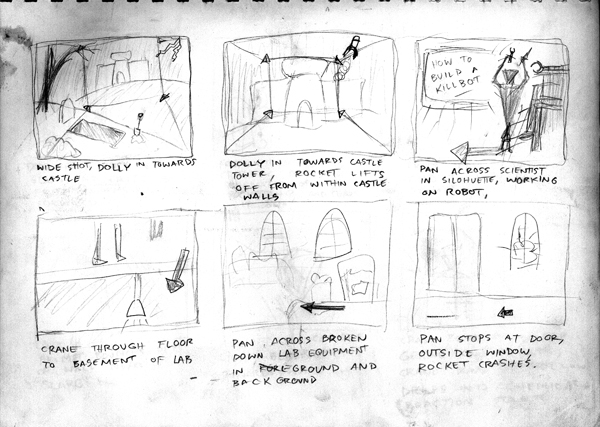 WIDE SHOT, DOLLY IN TOWARDS
CASTLE
DOLLY IN TOWARDS CASTLE
TOWER, ROCKET LIFTS
OFF FROM WITHIN CASTLE
WALLS
HOW TO
BUILD A
KILLBOT
PAN ACROSS SCIENTIST
IN SILOHUETTE, WORKING
ON ROBOT,
CRANE THROUGH FLOOR
TO BASEMENT OF LAB
PAN ACROSS BROKEN
DOWN LAB EQUIPMENT
IN FOREGROUND AND
BACKGROUND
PAN STOPS AT DOOR,
OUTSIDE WINDOW,
ROCKET CRASHES.